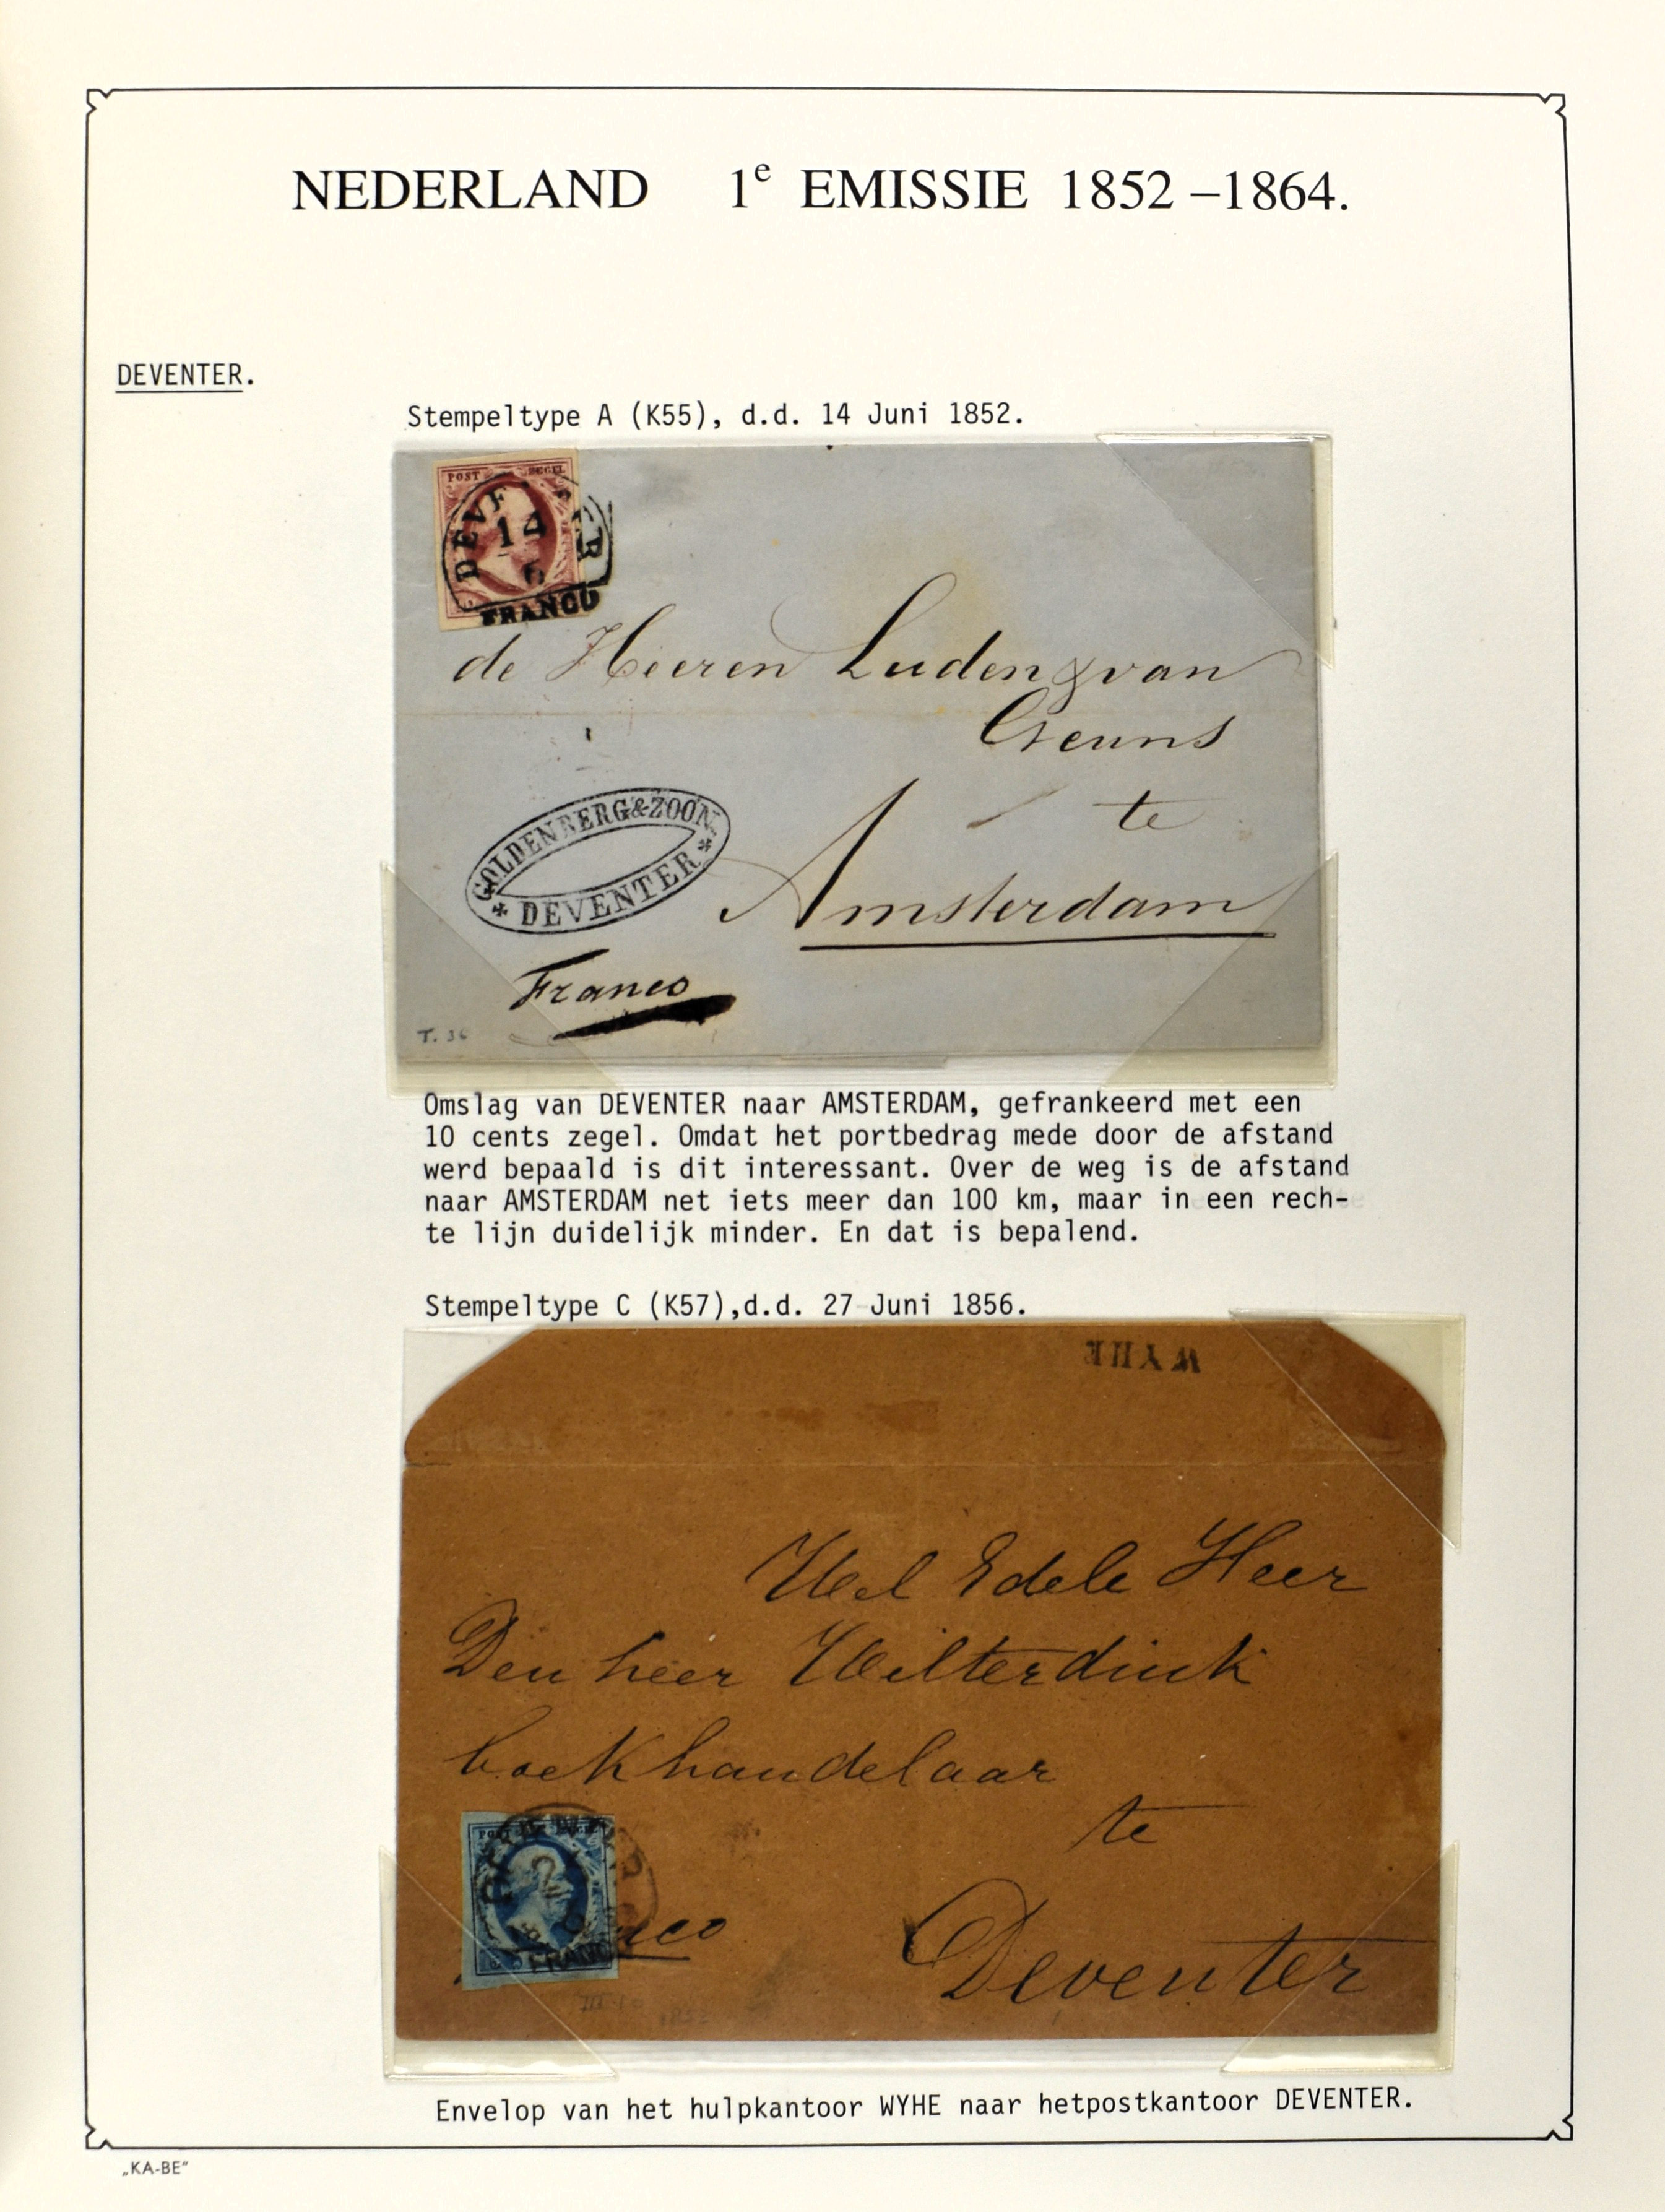 NEDERLAND 1e EMISSIE 1852 –1864.
DEVENTER.
Stempeltype A (K55), d.d. 14 Juni 1852.
POST ZEGEL
14
6
FRANCO
de Heeren Luden & van
Geuns
te
GOLDENBERG & ZOON.
DEVENTER
Amsterdam
Franco
T. 36
Omslag van DEVENTER naar AMSTERDAM, gefrankeerd met een
10 cents zegel. Omdat het portbedrag mede door de afstand
werd bepaald is dit interessant. Over de weg is de afstand
naar AMSTERDAM net iets meer dan 100 km, maar in een rech-
te lijn duidelijk minder. En dat is bepalend.
Stempeltype C (K57),d.d. 27 Juni 1856.
WYHE
Wel Edele Heer
Den heer Wilterdink
boekhandelaar
te
Deventer
Envelop van het hulpkantoor WYHE naar hetpostkantoor DEVENTER.
„KA-BE"